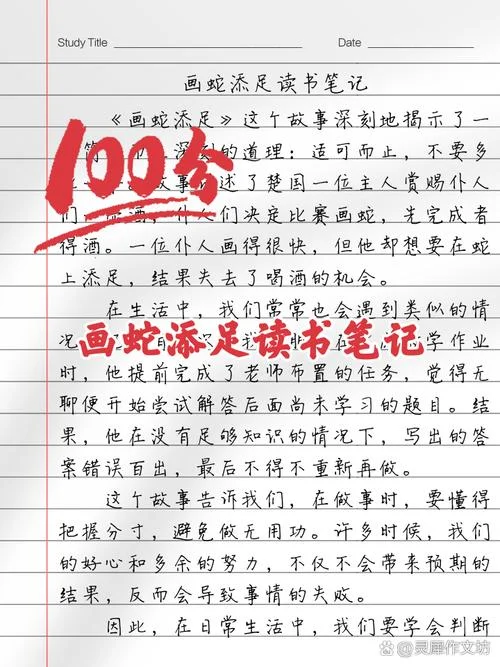 Study Title
Date
画蛇添足读书笔记
《画蛇添足》这个故事深刻地揭示了一
100分
深刻的道理：适可而止，不要多
故事 述了楚国一位主人赏赐仆人
们 酒，仆人们决定比赛画蛇，先完成者
得酒。一位仆人画得很快，但他却想要在蛇
上添足，结果失去了喝酒的机会。
在生活中，我们常常也会遇到类似的情
况
画蛇添足读书笔记
学作业
时，他提前完成了老师布置的任务，觉得无
聊便开始尝试解答后面尚未学习的题目。结
果，他在没有足够知识的情况下，写出的答
案错误百出，最后不得不重新再做。
这个故事告诉我们，在做事时，要懂得
把握分寸，避免做无用功。许多时候，我们
的好心和多余的努力，不仅不会带来预期的
结果，反而会导致事情的失败。
因此，在日常生活中，我们要学会判断
@灵犀作文坊